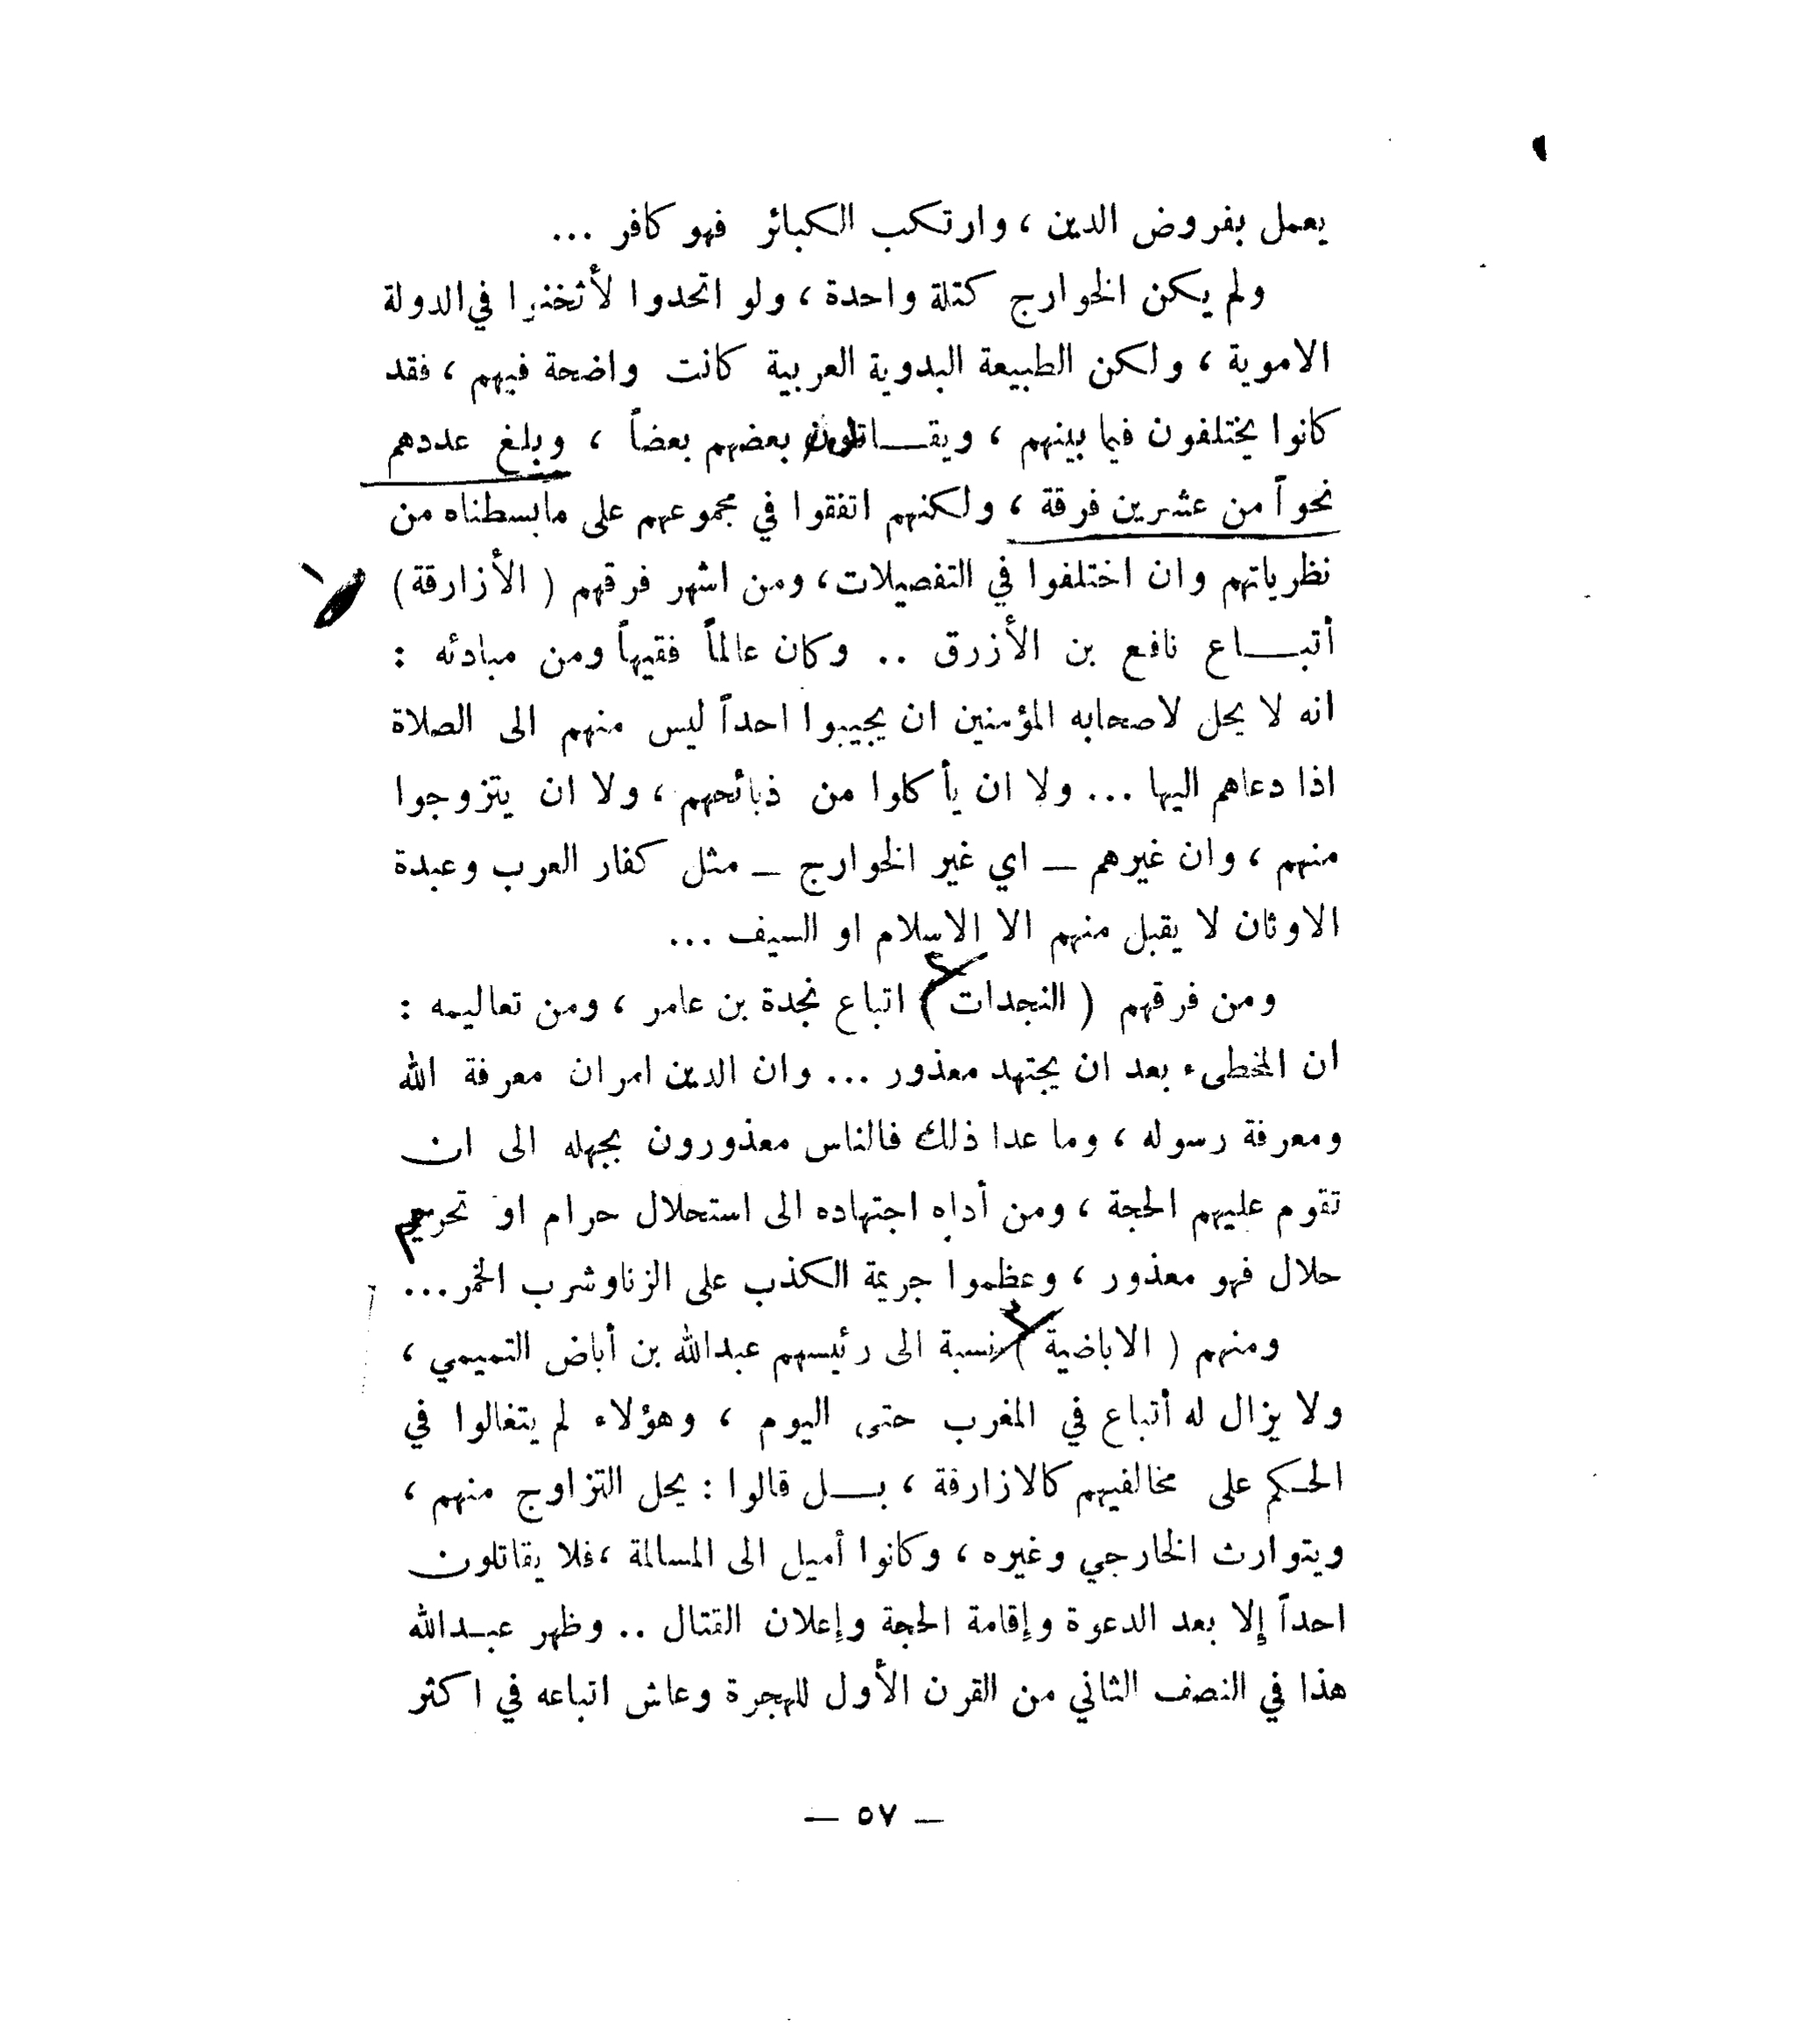 يعمل بفروض الدين ، وارتكب الكبائر فهو كافر ...
ولم يكن الخوارج كتلة واحدة ، ولو اتحدوا لأثخنوا في الدولة
الاموية ، ولكن الطبيعة البدوية العربية كانت واضحة فيهم ، فقد
كانوا يختلفون فيما بينهم ، ويقـــاتلون بعضهم بعضاً ، وبلغ عددهم
نحواً من عشرين فرقة ، ولكنهم اتفقوا في مجموعهم على مابسطناه من
نظرياتهم وان اختلفوا في التفصيلات ، ومن اشهر فرقهم ( الأزارقة )
أتبـــاع نافع بن الأزرق .. وكان عالماً فقيهاً ومن مبادئه :
انه لا يحل لاصحابه المؤمنين ان يجيبوا احداً ليس منهم الى الصلاة
اذا دعاهم اليها ... ولا ان يأكلوا من ذبائحهم ، ولا ان يتزوجوا
منهم ، وان غيرهم – اي غير الخوارج – مثل كفار العرب وعبدة
الاوثان لا يقبل منهم الا الاسلام او السيف ...
ومن فرقهم ( النجدات ) اتباع نجدة بن عامر ، ومن تعاليمه :
ان المخطىء بعد ان يجتهد معذور ... وان الدين امران معرفة الله
ومعرفة رسوله ، وما عدا ذلك فالناس معذورون بجهله الى ان
تقوم عليهم الحجة ، ومن أداه اجتهاده الى استحلال حرام او تحريم
حلال فهو معذور ، وعظموا جريمة الكذب على الزنا وشرب الخمر ...
ومنهم ( الاباضية ) نسبة الى رئيسهم عبدالله بن أباض التميمي ،
ولا يزال له أتباع في المغرب حتى اليوم ، وهؤلاء لم يتغالوا في
الحـكم على مخالفيهم كالازارقة ، بـــل قالوا : يحل التزاوج منهم ،
ويتوارث الخارجي وغيره ، وكانوا أميل الى المسالمة ، فلا يقاتلون
احداً إلا بعد الدعوة وإقامة الحجة وإعلان القتال .. وظهر عبـدالله
هذا في النصف الثاني من القرن الأول للهجرة وعاش اتباعه في اكثر
– ٥٧ –